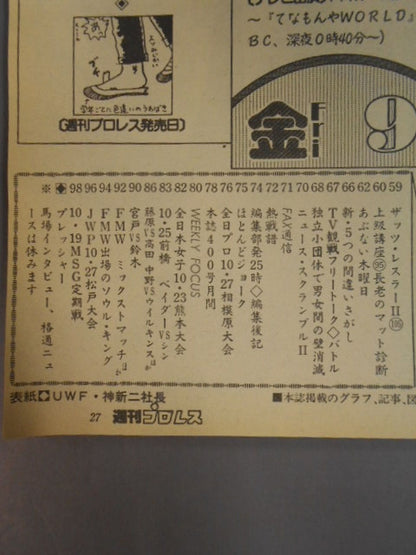 〜『てなもんやWORLD』
BC、深夜0時40分〜)
あ
学年ごとに色違いのうわばき
(週刊プロレス発売日)
金
Fri
9
59 ザッツ・レスラーⅡ
60 上級講座 95 長老のマット診断
62 あぶない木曜日
66 新・5つの間違いさがし
67 TV観戦フリートーク◇バトル
68 独立小団体で男女間の壁消滅
70 ニュース・スクランブルⅡ
71 FAX通信
72 熱戦譜
74 編集部発25時◇編集後記
75 ほとんどジョーク
76 全日プロ10・27相模原大会
78 本誌400号月間
80 WEEKLY FOCUS
82 全日本女子10・23熊本大会
83 10・25前橋 ベイダーVSシン
86 藤原VS高田 中野VSウイルキンスほか
90 宮戸VS鈴木
92 FMW ミックストマッチほか
94 FMW出場のソウル・キング
96 JWP10・27松戸大会
98 10・19MSG定期戦
◆ プレッシャー
※ 馬場インタビュー、格通ニュースは休みます
表紙◆UWF・神新二社長
■本誌掲載のグラフ、記事、図
27 週刊プロレス